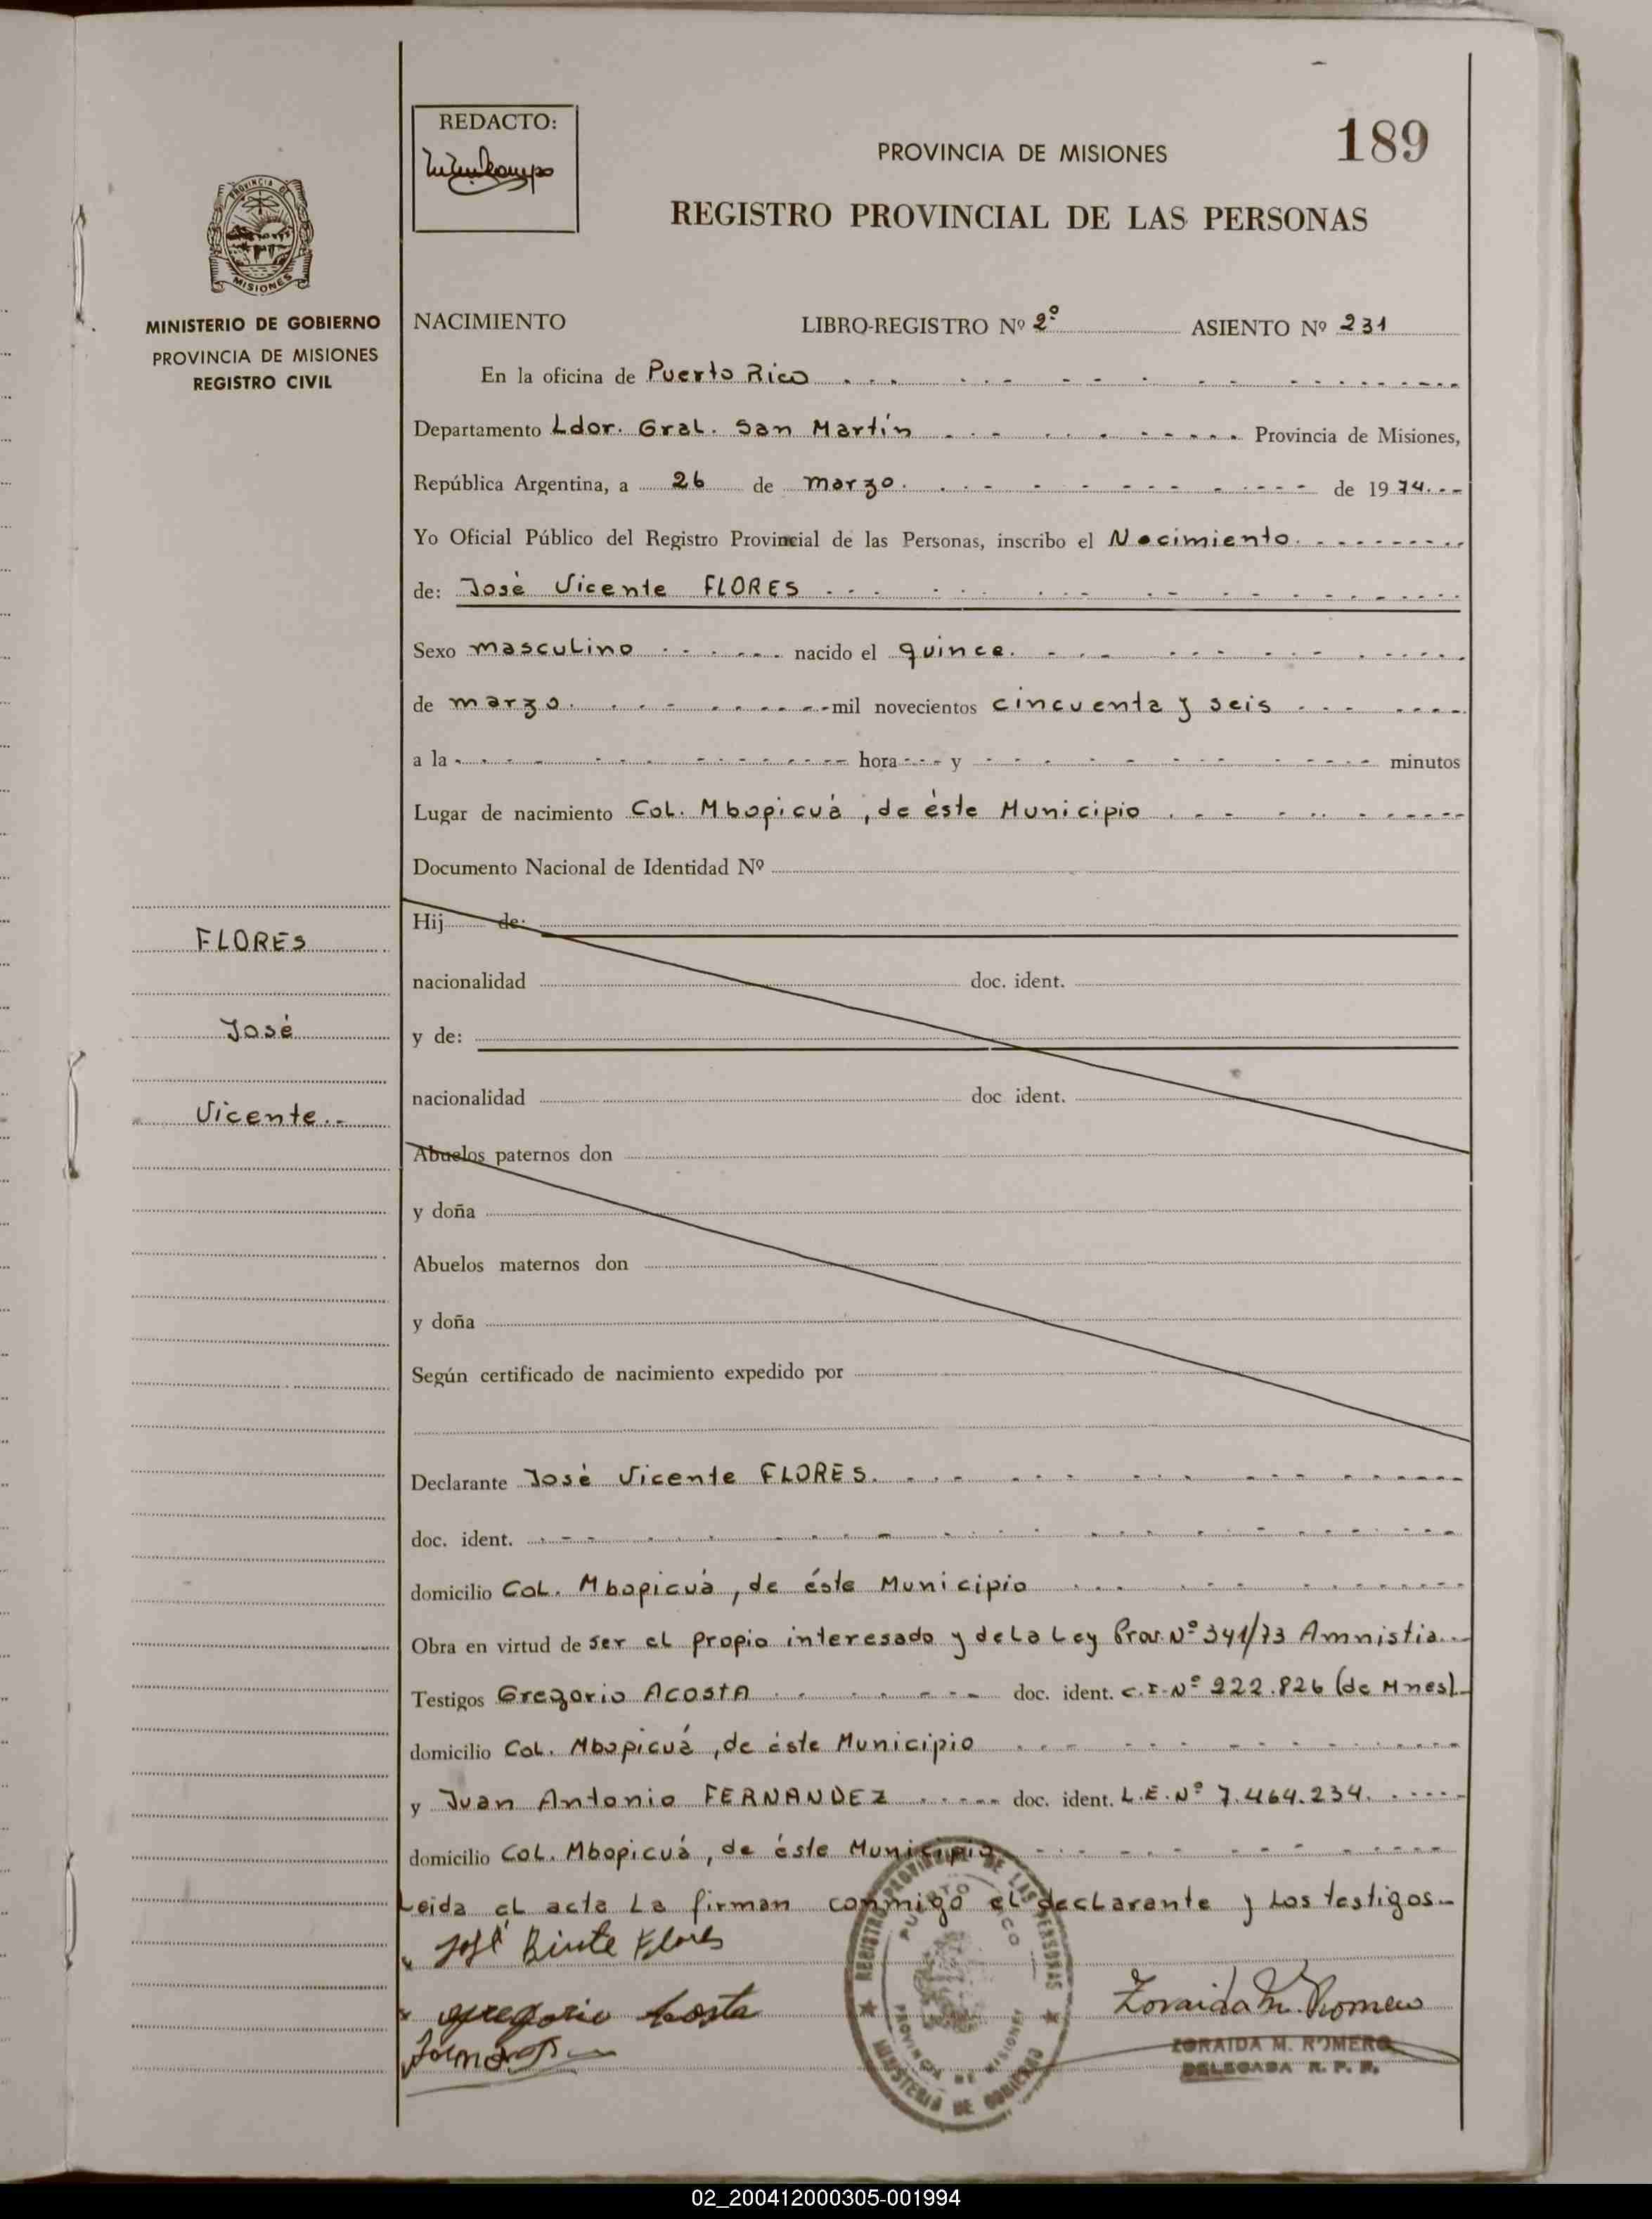 REDACTO:
189
PROVINCIA DE MISIONES
REGISTRO PROVINCIAL DE LAS PERSONAS
PROVINCIA DE
MISIONES
MINISTERIO DE GOBIERNO
PROVINCIA DE MISIONES
REGISTRO CIVIL
NACIMIENTO LIBRO-REGISTRO Nº 2º ASIENTO Nº 231
En la oficina de Puerto Rico
Departamento Ldor. Gral. San Martín Provincia de Misiones,
República Argentina, a 26 de marzo. de 1974.--
Yo Oficial Público del Registro Provincial de las Personas, inscribo el Nacimiento.
de: José Vicente FLORES
Sexo masculino nacido el quince.
de marzo. mil novecientos cincuenta y seis
a la hora y minutos
Lugar de nacimiento Col. Mbopicuá, de éste Municipio
Documento Nacional de Identidad Nº
Hij de:
FLORES
nacionalidad doc. ident.
José
y de:
nacionalidad doc ident.
Vicente..
Abuelos paternos don
y doña
Abuelos maternos don
y doña
Según certificado de nacimiento expedido por
Declarante José Vicente FLORES.
doc. ident.
domicilio Col. Mbopicuá, de éste Municipio
Obra en virtud de ser el propio interesado y de la Ley Prov. Nº 341/73 Amnistia.--
Testigos Gregorio ACOSTA doc. ident. C.I. Nº 222.826 (de Mnes).
domicilio Col. Mbopicuá, de éste Municipio
y Juan Antonio FERNANDEZ doc. ident. L.E. Nº 7.464.234.
domicilio Col. Mbopicuá, de éste Municipio
Leida el acta la firman conmigo el declarante y los testigos.-
José Binte Flores
Gregorio Acosta
Zoraida M. Romero
ZORAIDA M. ROMERO
DELEGADA R. P. P.
REGISTRO PROVINCIAL DE LAS PERSONAS
PUERTO RICO
PROVINCIA DE MISIONES
MINISTERIO DE GOBIERNO
02_200412000305-001994